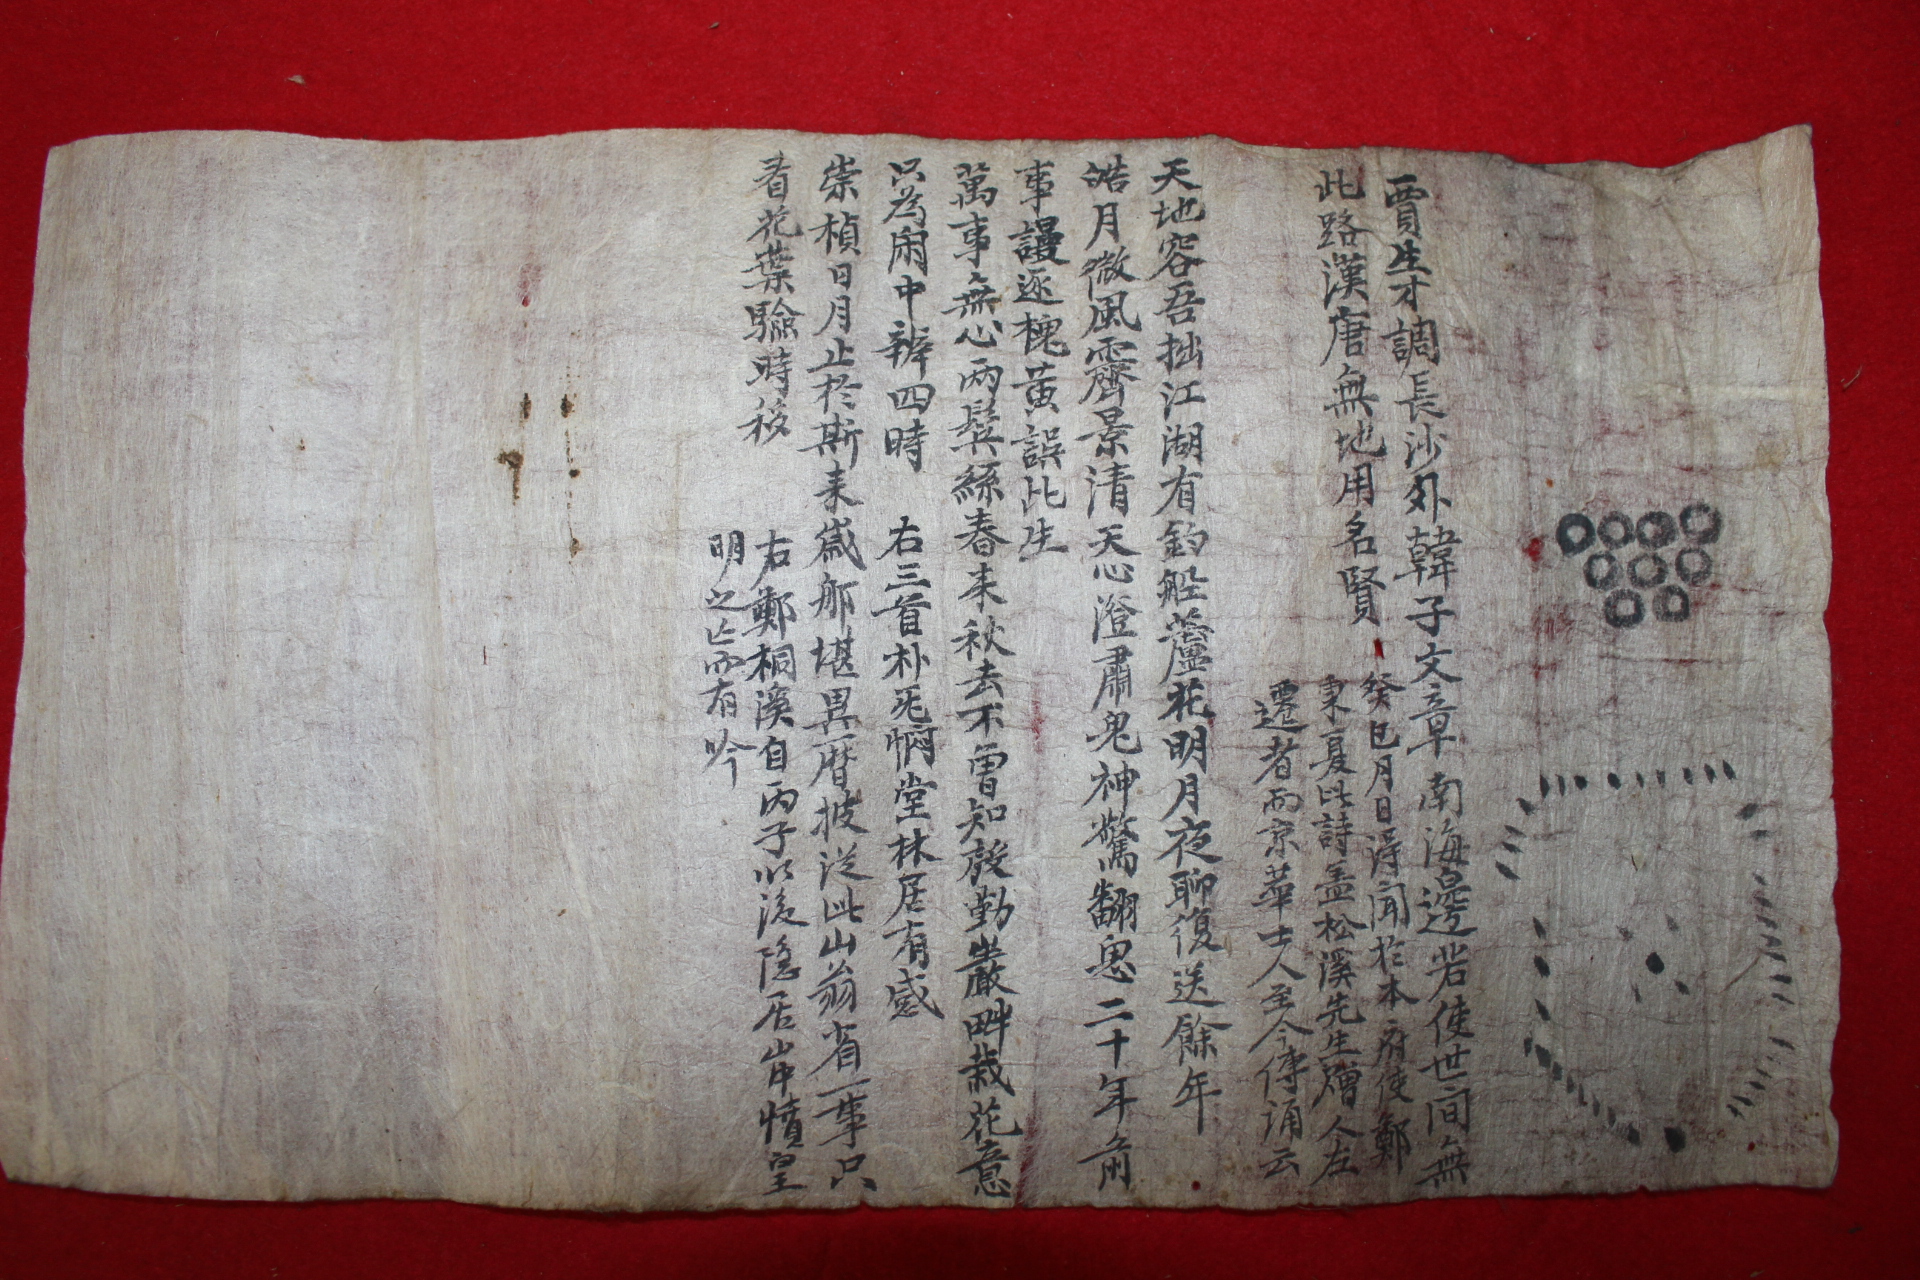 賈生才調長沙外韓子文章南海邊若使世间無
此路漢唐無地用名賢
癸巳月日得聞於本府使鄭
東夏此詩盖松溪先生贈人左
遷者而京華士人至今傳誦云
天地容吾拙江湖有釣船蘆花明月夜聊復送餘年
皓月微風霽景清天心澄肅鬼神驚翻思二十年前
事謾逐槐黄誤此生
萬事無心兩鬂絲春来秋去不曾知慇勤巖畔栽花意
只為閑中辨四時　右三首朴无悶堂林居有感
崇楨日月止於斯来歲那堪異曆披從此山翁省一事只
看花葉驗時移
右鄭桐溪自丙子以後隱居山中憤皇
明之亡而有吟